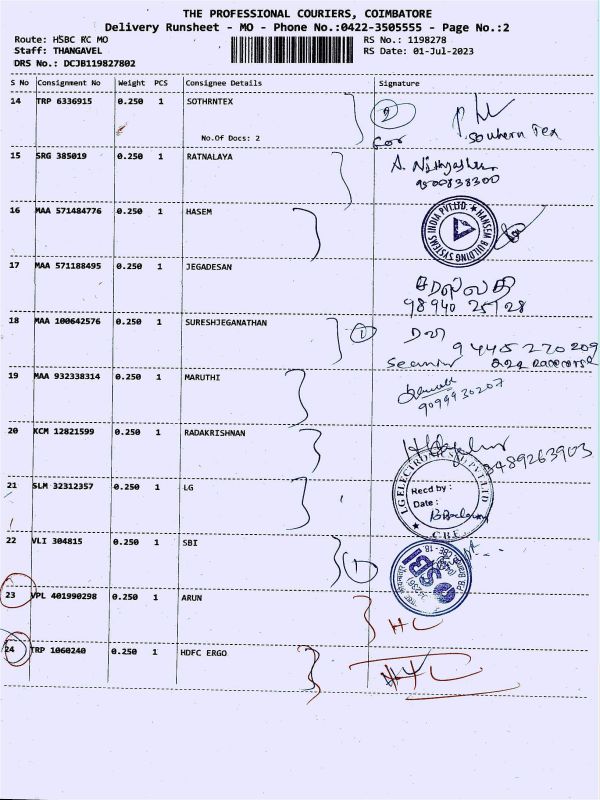 THE PROFESSIONAL COURIERS, COIMBATORE
Delivery Runsheet - MO - Phone No.:0422-3505555 - Page No.:2
Route: HSBC RC MO
RS No.: 1198278
Staff: THANGAVEL
RS Date: 01-Jul-2023
DRS No.: DCJB119827802
S No Consignment No Weight PCS Consignee Details Signature
14 TRP 6336915 0.250 1 SOTHRNTEX
2
No.Of Docs: 2
For Southern Tex
15 SRG 385019 0.250 1 RATNALAYA
9500838300
16 MAA 571484776 0.250 1 HASEM
HANSEM BUILDING SYSTEMS INDIA PVT.LTD.
17 MAA 571188495 0.250 1 JEGADESAN
98940 25128
18 MAA 100642576 0.250 1 SURESHJEGANATHAN
1
94425 270 209
19 MAA 932338314 0.250 1 MARUTHI
9099930207
20 KCM 12821599 0.250 1 RADAKRISHNAN
9489263903
21 SLM 32312357 0.250 1 LG
LG ELECTRONICS
Recd by :
Date :
CBE
22 VLI 304815 0.250 1 SBI
1
23 VPL 401990298 0.250 1 ARUN
HC
24 TRP 1060240 0.250 1 HDFC ERGO